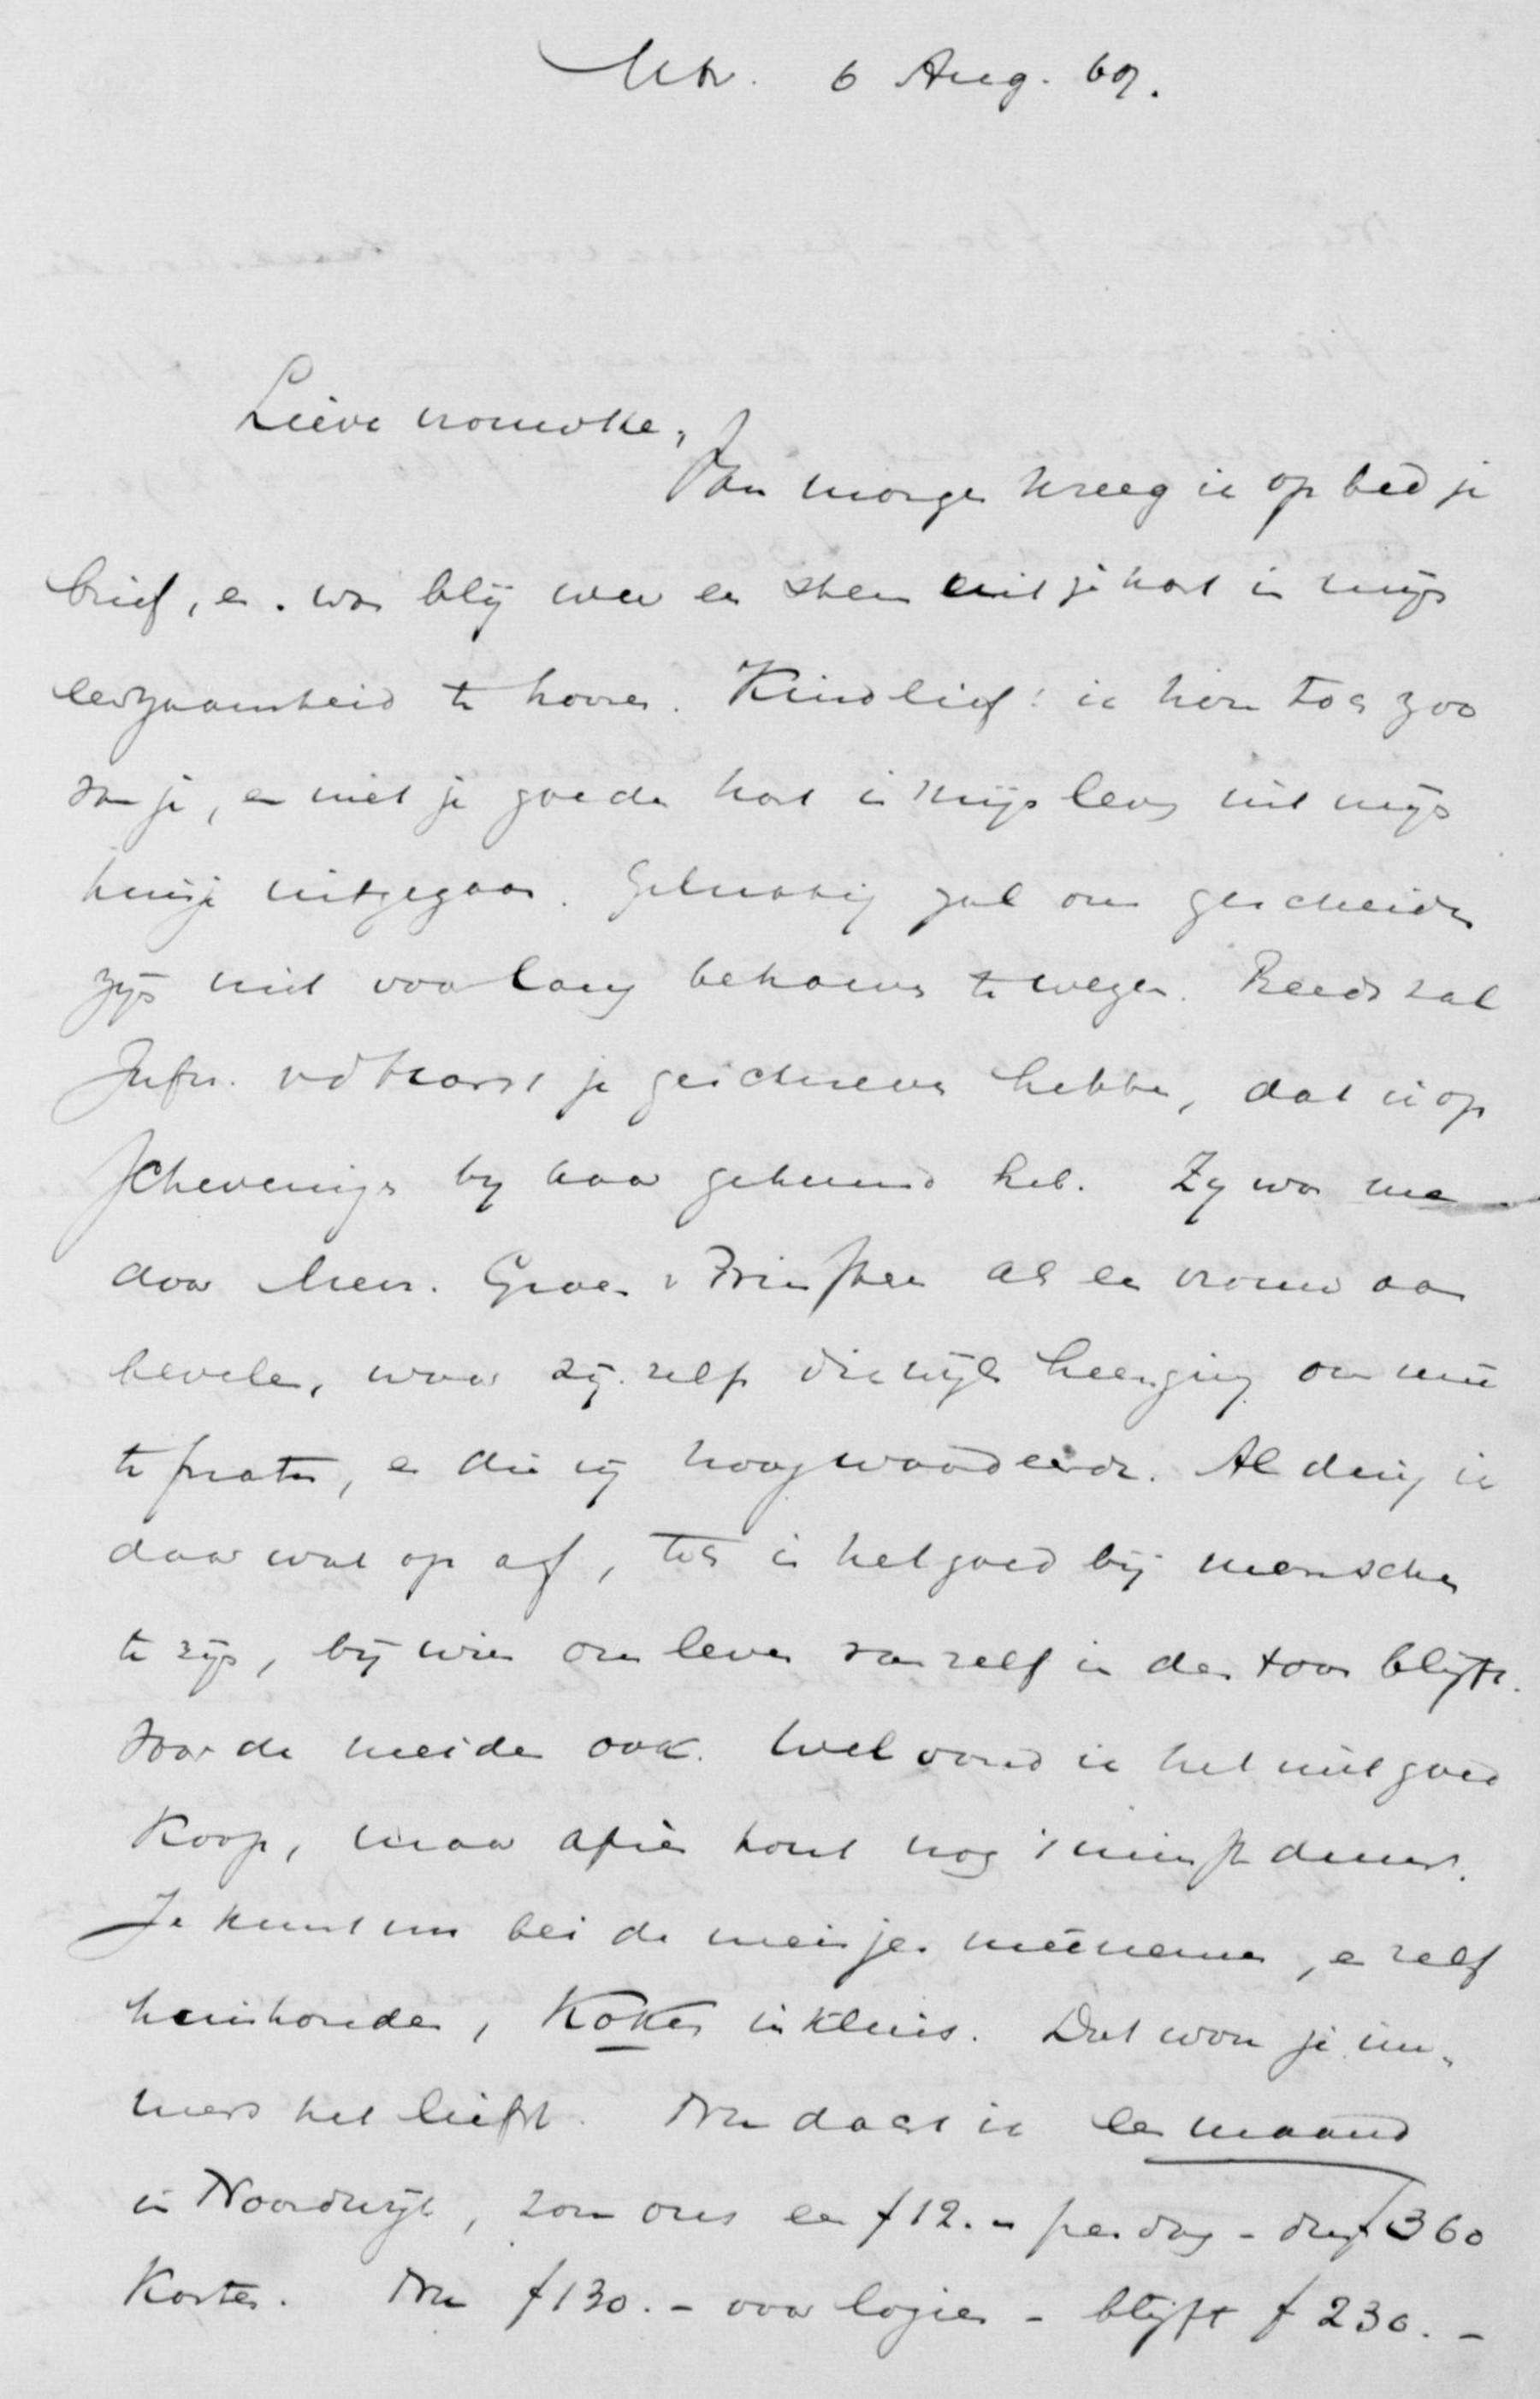 Utr. 6 Aug. 69.
Lieve vrouwke,
Van morgen kreeg ik op bed je
brief, en was blij weer een stem uit je hart in mijn
eenzaamheid te hooren. Kindlief! ik hou toch zoo
van je, en met je goede hart is mijn leven uit mijn
huisje uitgegaan. Gelukkig zal ons gescheiden
zijn niet voor lang behoeven te wezen. Reeds zal
Jufr. vd Horst je geschreven hebben, dat ik op
Schevening by haar gehuurd heb. Zy was me
door Mevr. Groen v Prinster als een vrouw aan
bevolen, waar zij zelf dikwijls heenging om mee
te praten, en die zij hoog waardeerde. Al ding ik
daar wat op af, toch is het goed bij menschen
te zijn, bij wien ons leven van zelf in den toon blijft.
Voor de meiden ook. Wel vond ik het niet goed
koop, maar Afié komt nog 't minst duur.
Je kunt nu bei de meisjes meenemen, en zelf
huishouden, koken inkluis. Dat wou je im-
mers het liefst. Nu dacht ik een maand
in Noordwijk, zou ons een f 12.- per dag - dus f 360
kosten. Nu f 130.- voor logies - blijft f 230.-